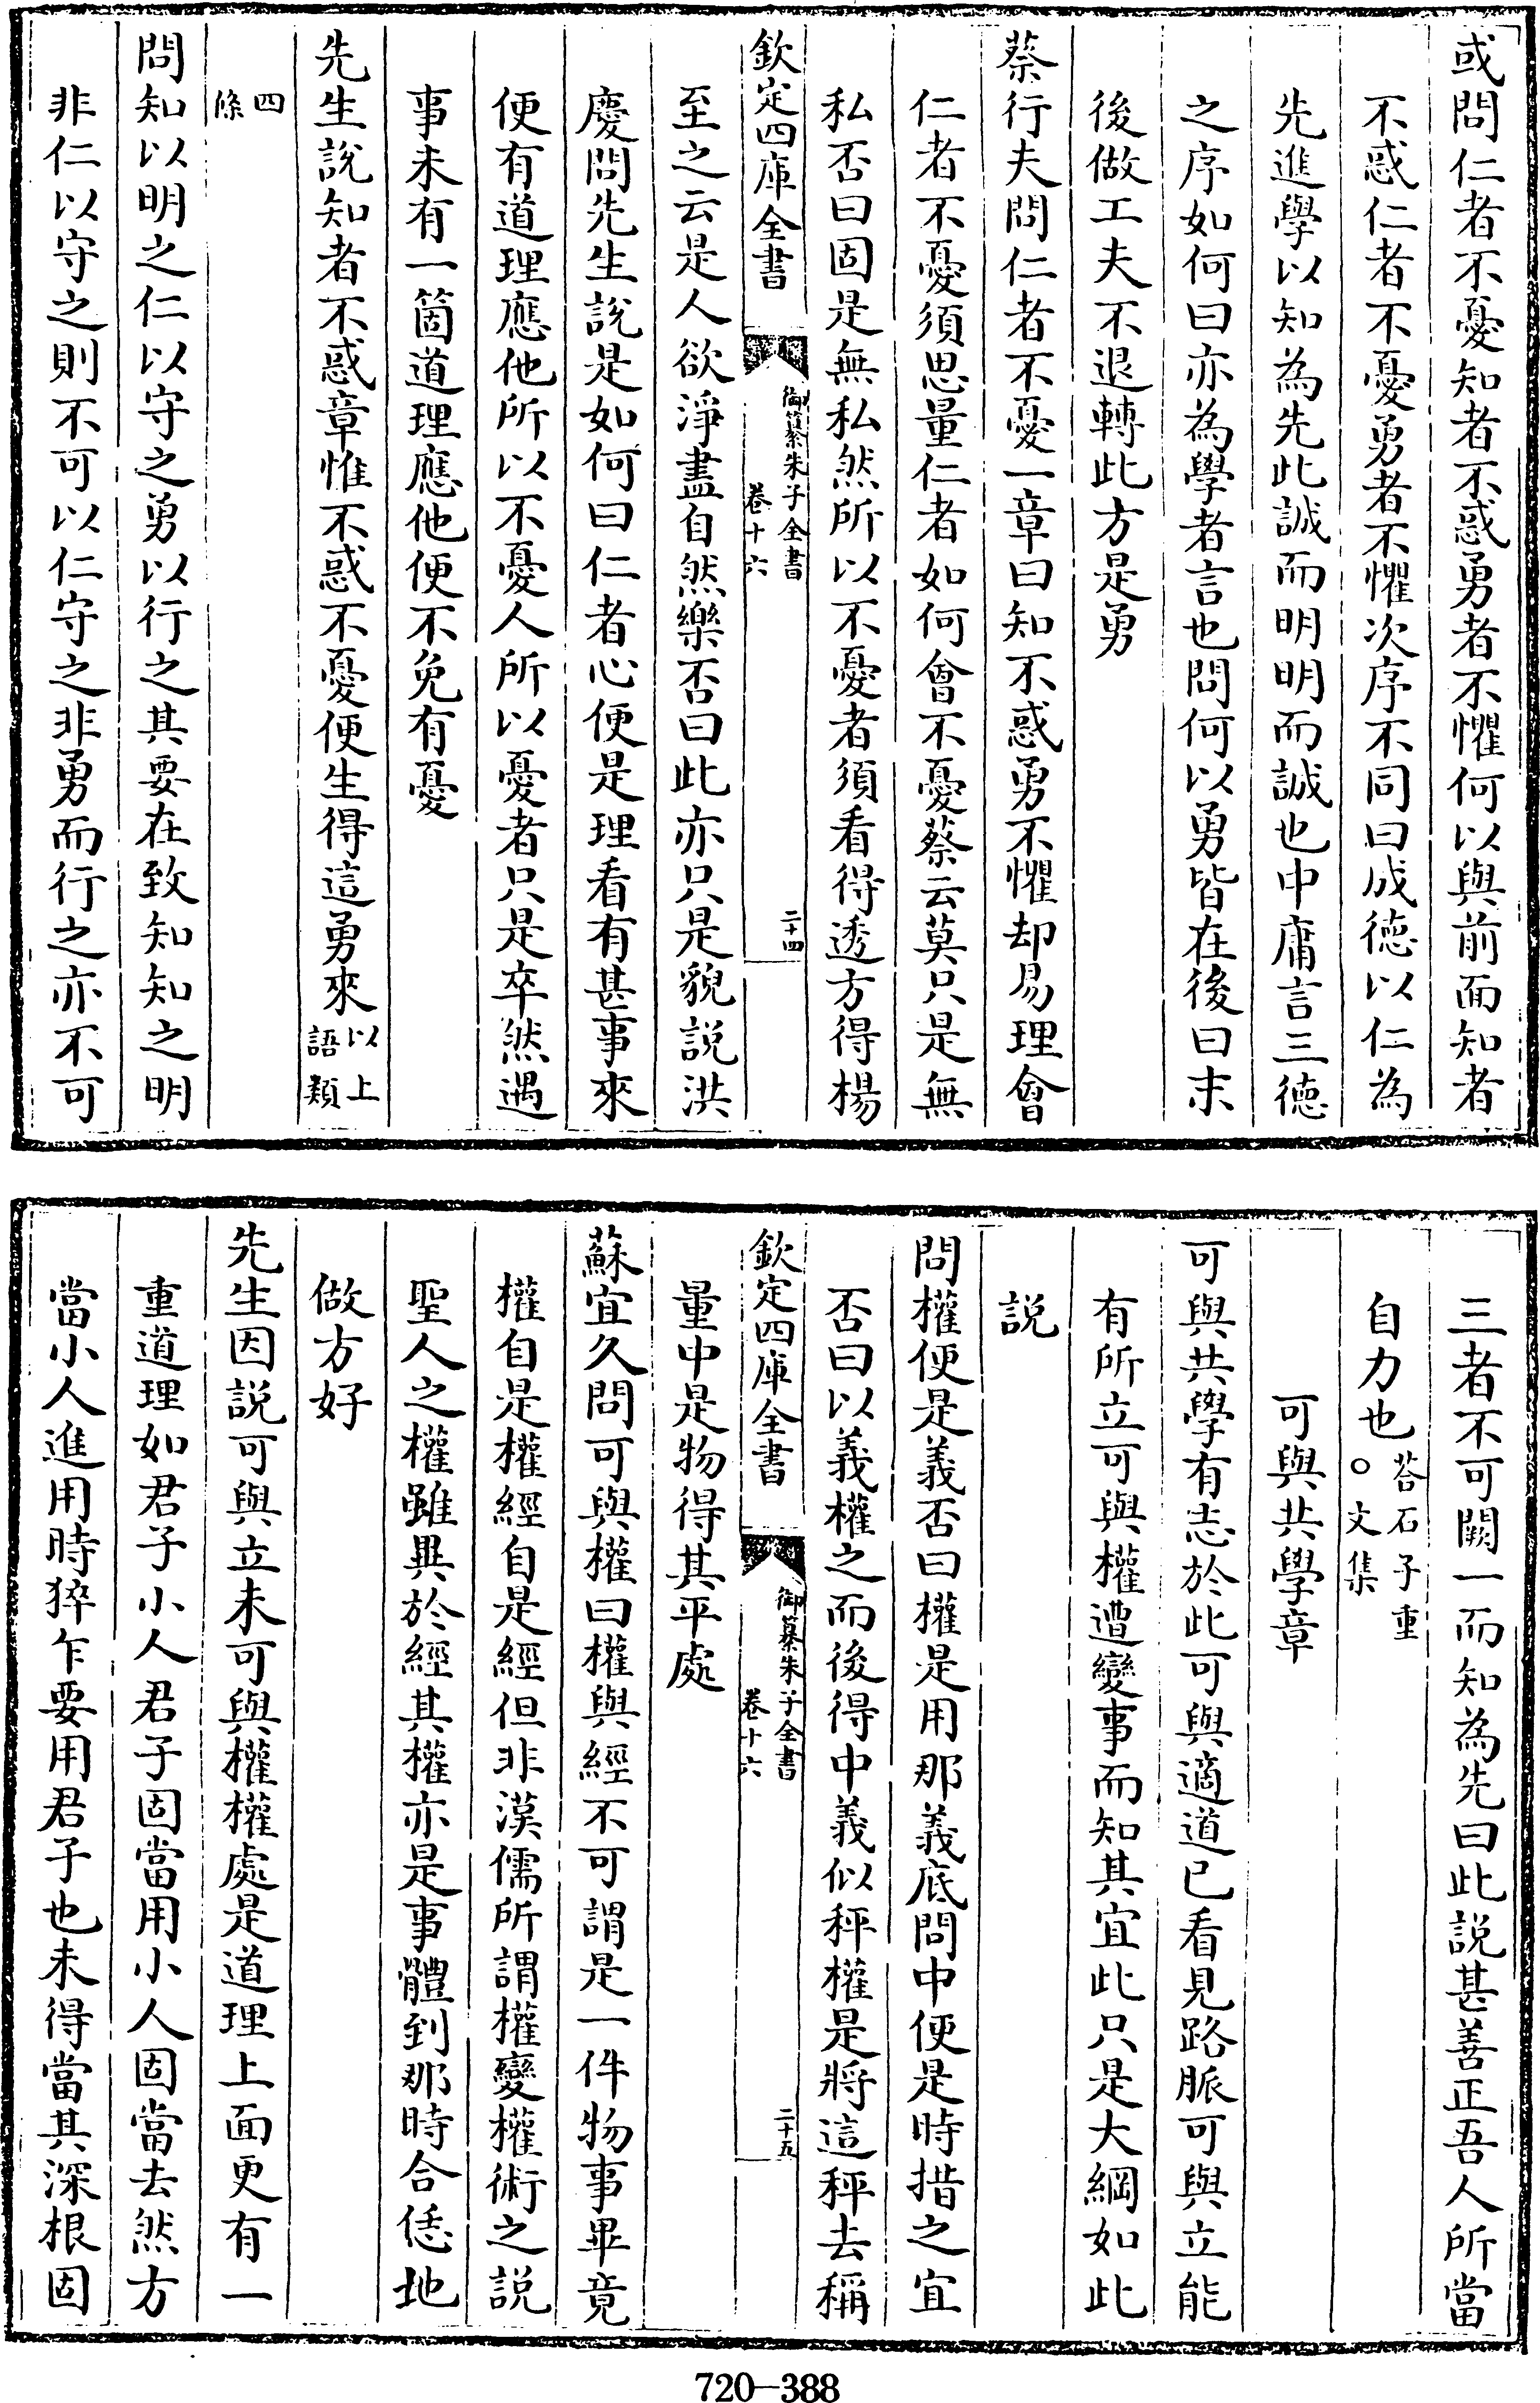 或問仁者不憂知者不惑勇者不懼何以與前面知者
不惑仁者不憂勇者不懼次序不同曰成徳以仁為
先進學以知為先此誠而明明而誠也中庸言三徳
之序如何曰亦為學者言也問何以勇皆在後曰末
後做工夫不退轉此方是勇
蔡行夫問仁者不憂一章曰知不惑勇不懼却易理會
仁者不憂須思量仁者如何會不憂蔡云莫只是無
私否曰固是無私然所以不憂者須看得透方得楊
欽定四庫全書
御纂朱子全書
卷十六
二十四
至之云是人欲淨盡自然樂否曰此亦只是貌説洪
慶問先生説是如何曰仁者心便是理看有甚事來
便有道理應他所以不憂人所以憂者只是卒然遇
事未有一箇道理應他便不免有憂
先生說知者不惑章惟不惑不憂便生得這勇來以上
語類
四
條
問知以明之仁以守之勇以行之其要在致知知之明
非仁以守之則不可以仁守之非勇而行之亦不可
三者不可闕一而知為先曰此説甚善正吾人所當
自力也荅石子重
○文集
可與共學章
可與共學有志於此可與適道已看見路脈可與立能
有所立可與權遭變事而知其宜此只是大綱如此
説
問權便是義否曰權是用那義底問中便是時措之宜
否曰以義權之而後得中義似秤權是將這秤去稱
欽定四庫全書
御纂朱子全書
卷十六
二十五
量中是物得其平處
蘇宜久問可與權曰權與經不可謂是一件物事畢竟
權自是權經自是經但非漢儒所謂權變權術之説
聖人之權雖異於經其權亦是事體到那時合恁地
做方好
先生因説可與立未可與權權處是道理上面更有一
重道理如君子小人君子固當用小人固當去然方
當小人進用時猝乍要用君子也未得當其深根固
720-388